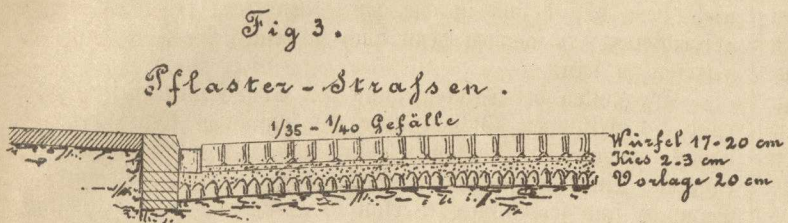 Fig 3.
Pflaster-Straſsen.
1/35 - 1/40 Gefälle
Würfel 17-20 cm
Kies 2-3 cm
Vorlage 20 cm